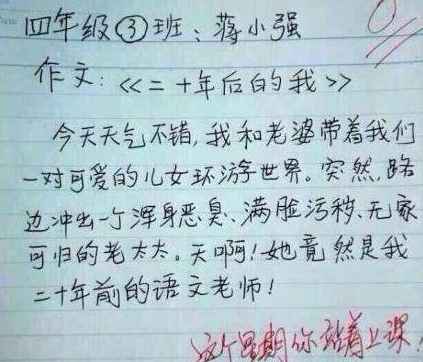 四年级③班：蒋小强
作文：<<二十年后的我>>
今天天气不错，我和老婆带着我们
一对可爱的儿女环游世界。突然，路
边冲出一个浑身恶臭、满脸污秽、无家
可归的老太太。天啊！她竟然是我
二十年前的语文老师！
这个星期你站着上课！